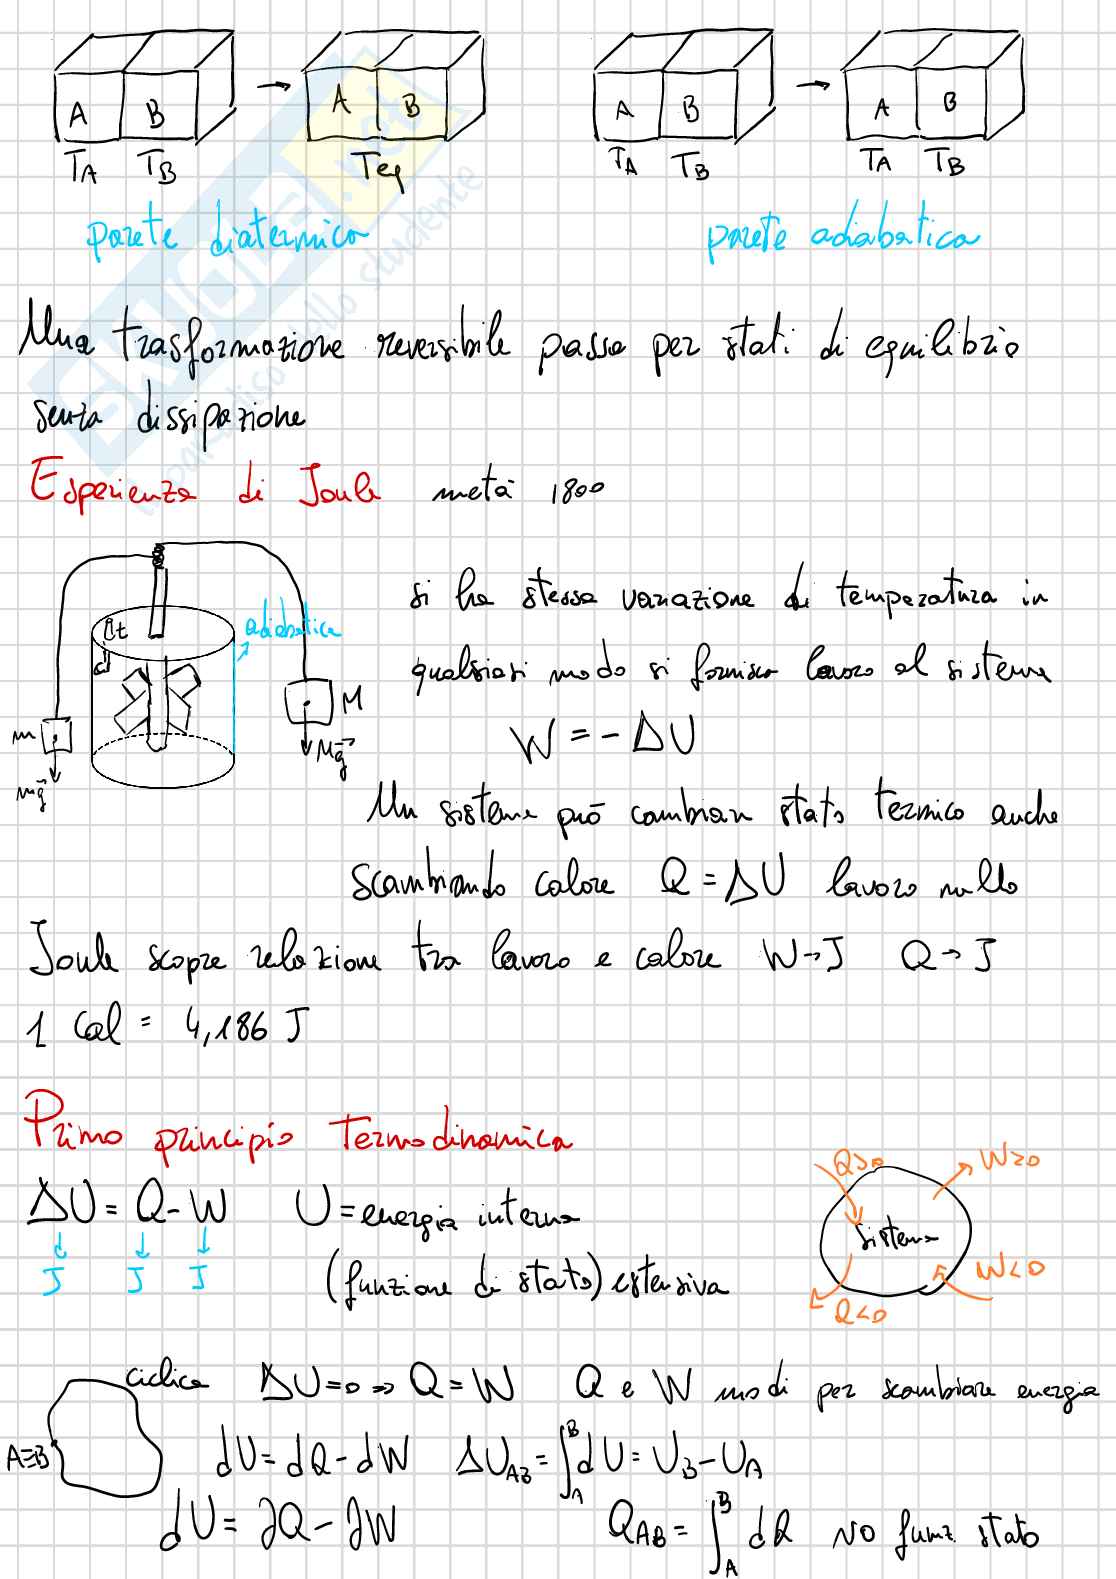 A B → A B A B → A B
T_A T_B Teq T_A T_B T_A T_B
parete diatermica parete adiabatica
Una trasformazione reversibile passa per stati di equilibrio
senza dissipazione
Esperienza di Joule metà 1800
si ha stessa variazione di temperatura in
Δt adiabatica
qualsiasi modo si fornisca lavoro al sistema
m M
W = - ΔU
mg⃗ Mg⃗
Un sistema può cambiare stato termico anche
scambiando calore Q = ΔU lavoro nullo
Joule scopre relazione tra lavoro e calore W→J Q→J
1 Cal = 4,186 J
Primo principio Termodinamica
ΔU = Q - W U = energia interna
J J J (funzione di stato) estensiva
Q>0 W>0
sistema
W<0
Q<0
ciclica ΔU=0 => Q = W Q e W modi per scambiare energia
A≡B dU = dQ - dW ΔU_AB = ∫_A^B dU = U_B - U_A
dU = ∂Q - ∂W Q_AB = ∫_A^B dQ NO funz. stato
SKUOLA.net